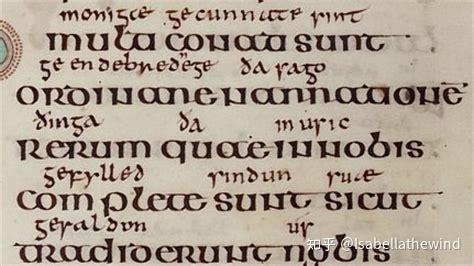 monigæ gecunnate sint
multi conati sunt
ge endebrednege ða sago
ordinare narrationē
ðinga ða in usic
rerum quae in nobis
gefylled sindun suæ
completae sunt sicut
gesaldon us
tradiderunt nobis
知乎 @Isabellathewind